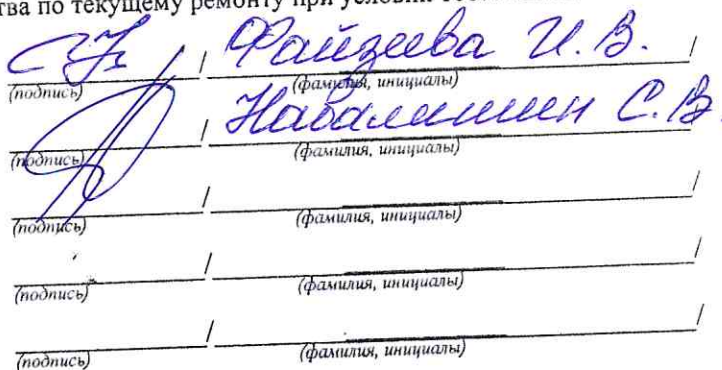 тва по текущему ремонту при условии
/ Файзеева И. В. /
(подпись) (фамилия, инициалы)
/ С. В.
(подпись) (фамилия, инициалы)
/ /
(подпись) (фамилия, инициалы)
/ /
(подпись) (фамилия, инициалы)
/ /
(подпись) (фамилия, инициалы)